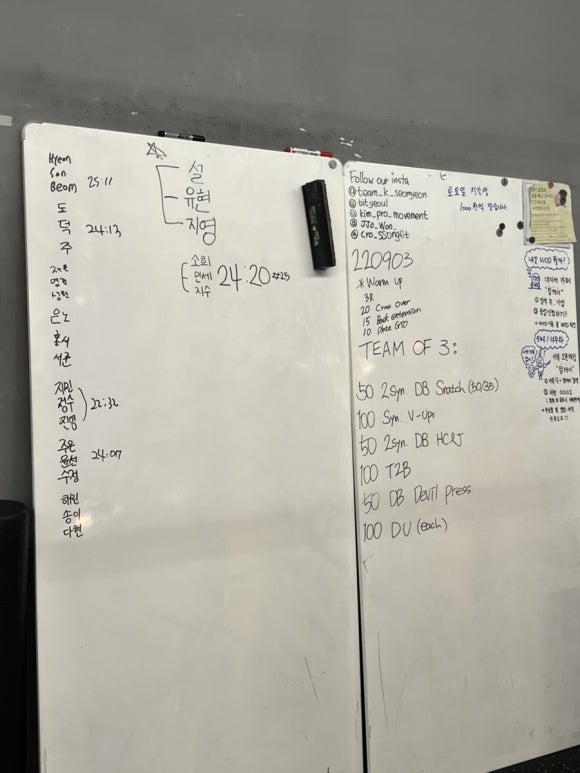 Hyeon
Son
Beom
25:11
도
덕
주
24:13
은노
홍시
서준
지민
정수
진영
22:32
주은
윤선
수정
24:07
해린
송이
다현
설
유현
지영
소희
연세
지수
24:20 #25
Follow our insta
@team_k_seomyeon
@bit.yeoul
@kim_pro_movement
@JJo_Woo_
@cro_ssongfit
토요일 지각생
1000원씩 받습니다.
220903
* Warm up
3R
20 Cross Over
15 Back extension
10 Plate GTO
TEAM OF 3:
50 2syn. DB Snatch (50/35)
100 Syn. V-ups
50 2syn. DB HC&J
100 T2B
50 DB Devil press
100 DU (each)
내일 WOD 뭐지?